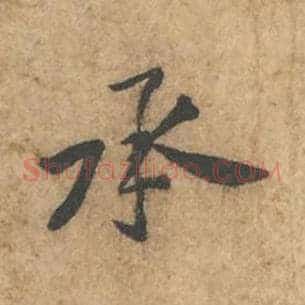 承
Shufazidian.com